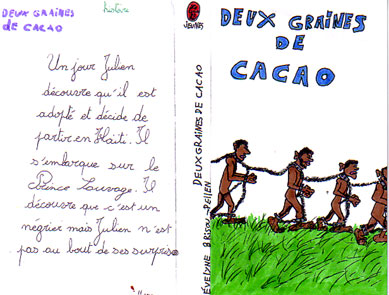 DEUX GRAINES
DE CACAO
histoire
Un jour Julien
découvre qu'il est
adopté et décide de
partir en Haïti. Il
s'embarque sur le
Prince Sauvage. Il
découvre que c'est un
négrier mais Julien n'est
pas au bout de ses surprises
EVELYNE BRISOU-PELLEN
DEUX GRAINES DE CACAO
JEUNES
DEUX GRAINES
DE
CACAO